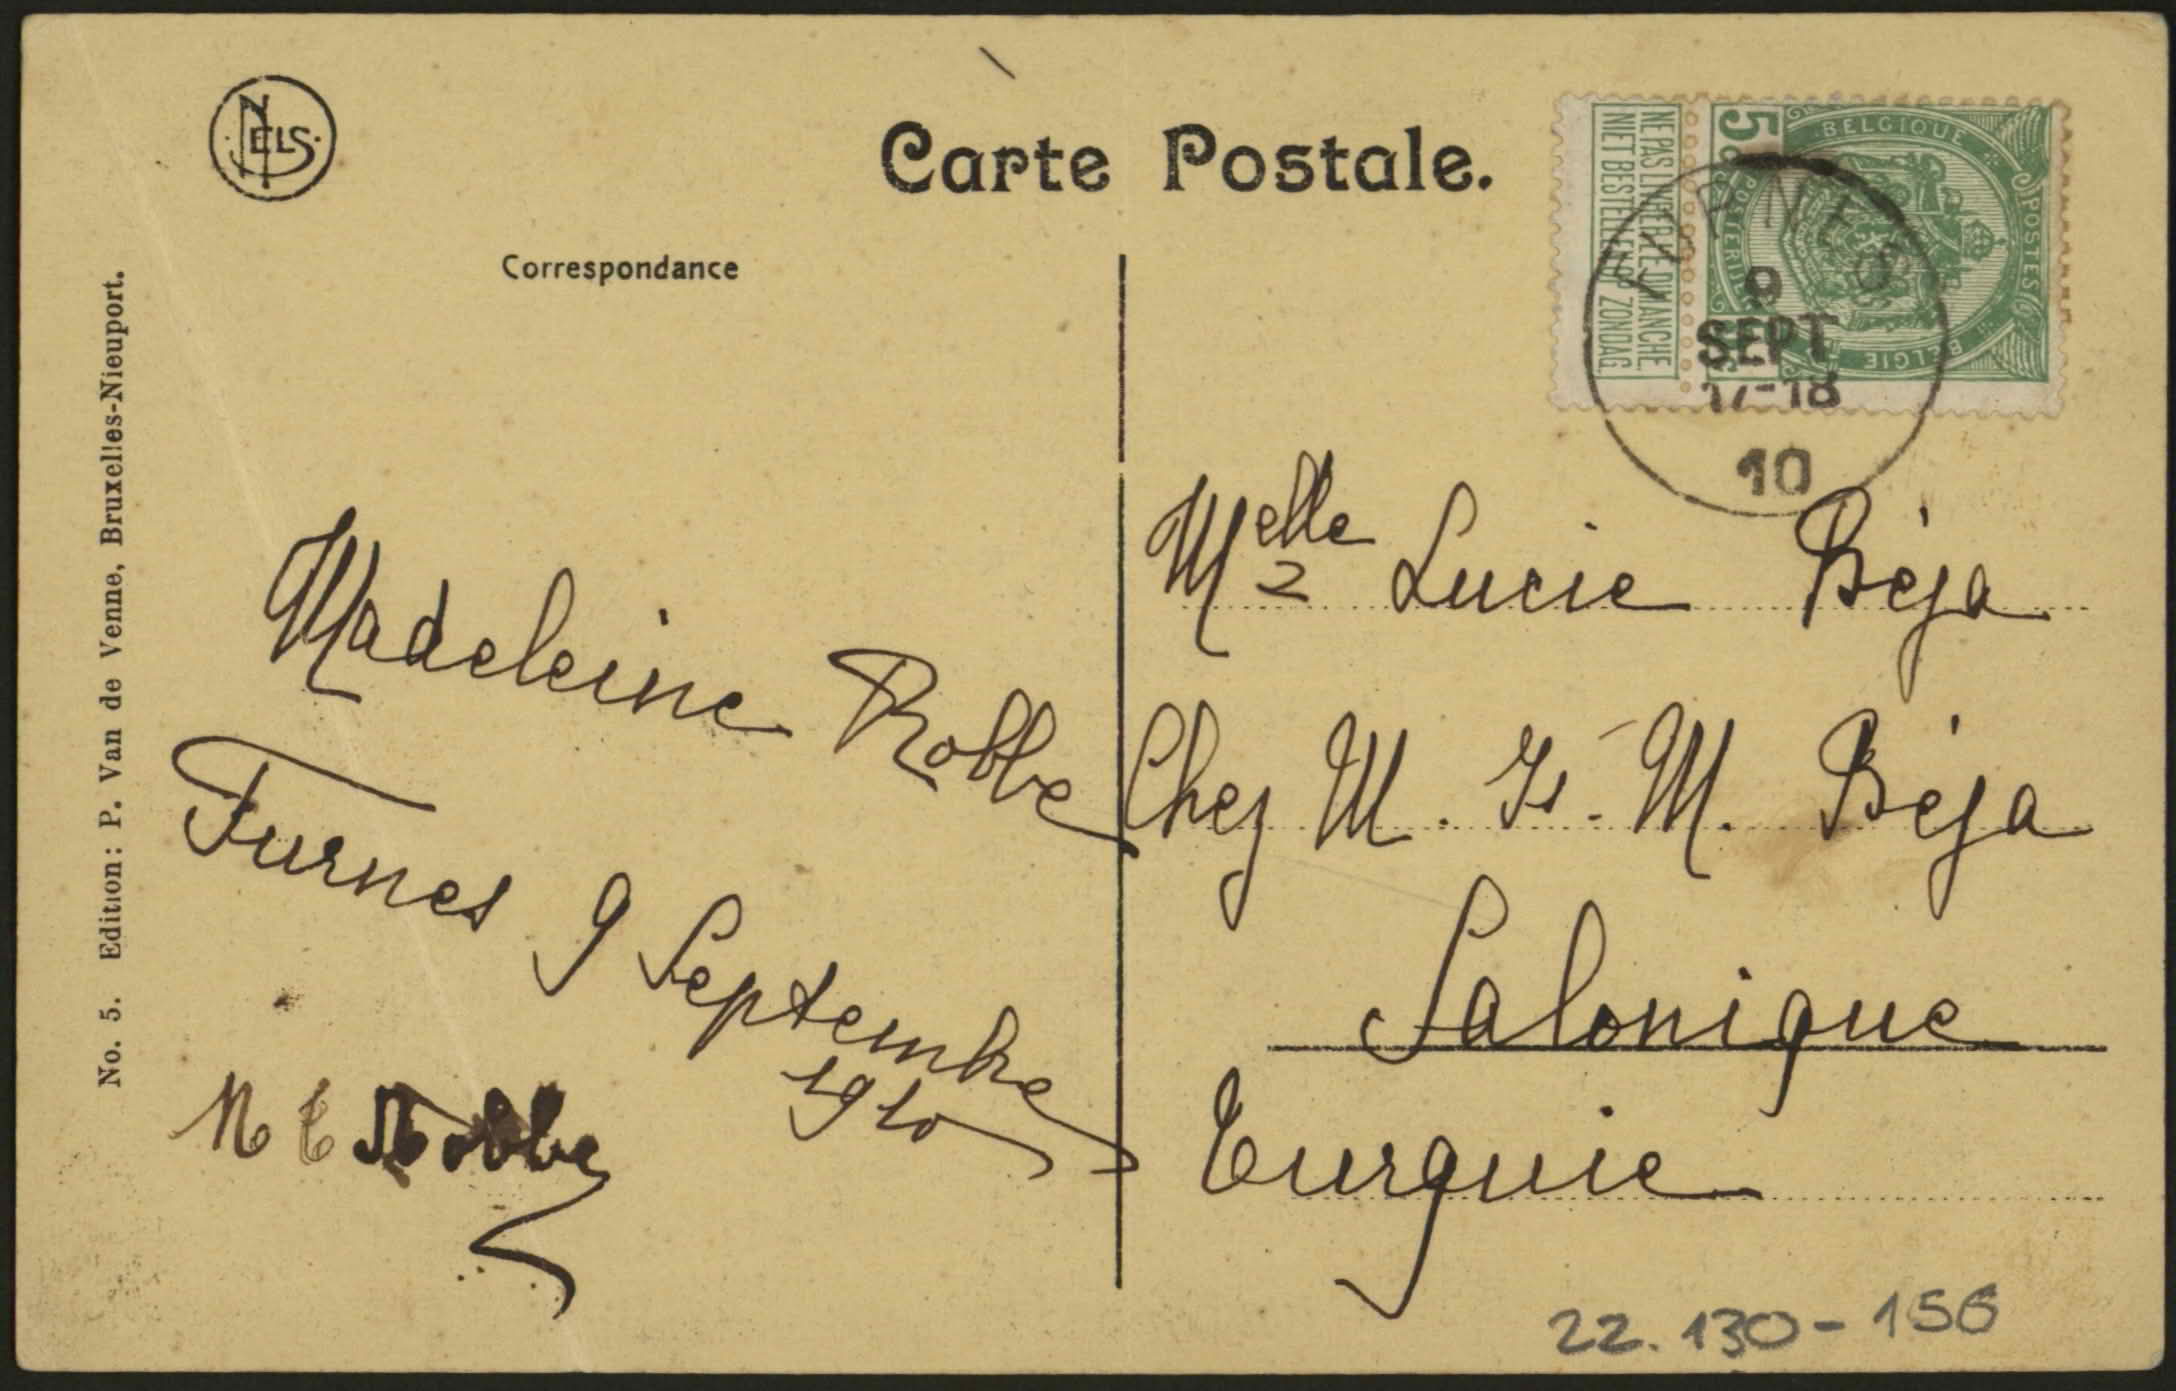 NELS
Carte Postale.
Correspondance
No. 5. Edition: P. Van de Venne, Bruxelles-Nieuport.
NE PAS LIVRER LE DIMANCHE
NIET BESTELLEN OP ZONDAG
5
BELGIQUE
POSTES
BELGIE
POSTERIJEN
FURNES
9
SEPT
17-18
10
Madeleine Robbe
Furnes 9 Septembre
1910
Robbe
Melle Lucie Béja
Chez M. Is. M. Béja
Salonique
Turquie
22.130-156